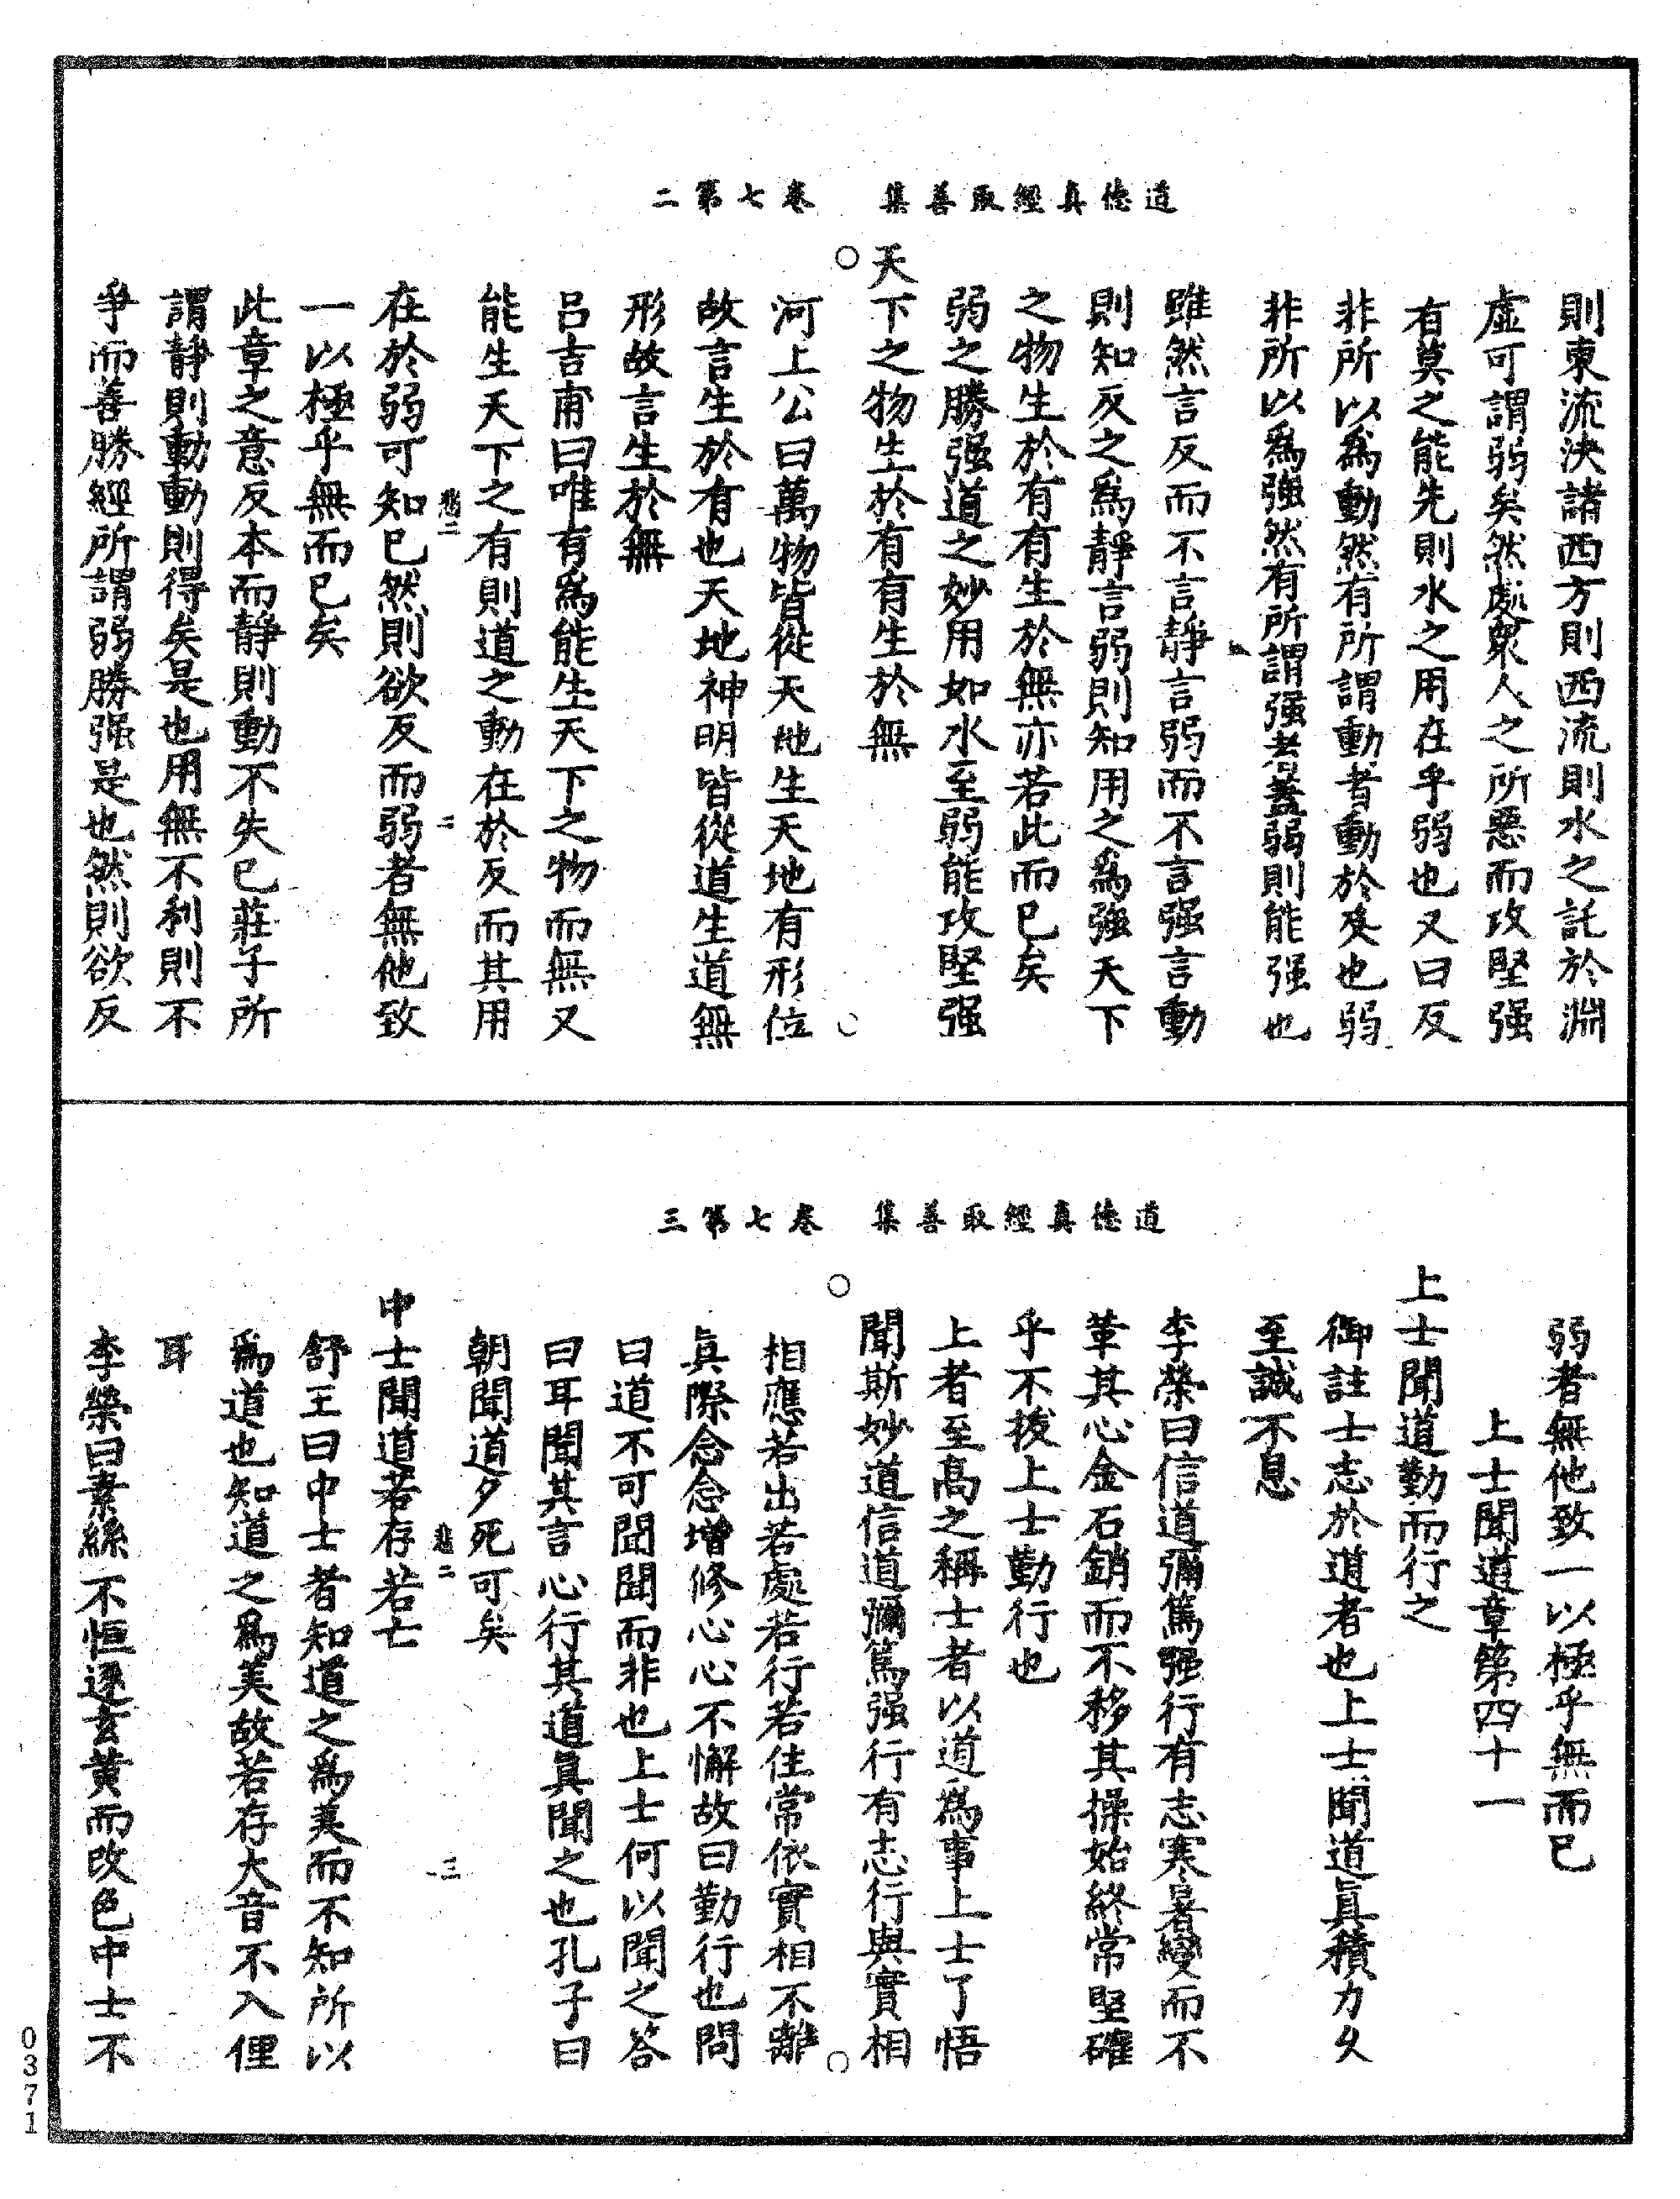 道德真經取善集　卷七第二
則東流決諸西方則西流則水之託於淵
虛可謂弱矣然處眾人之所惡而攻堅强
有莫之能先則水之用在乎弱也又曰反
非所以為動然有所謂動者動於反也弱
非所以為強然有所謂强者蓋弱則能强也
雖然言反而不言靜言弱而不言强言動
則知反之為靜言弱則知用之為強天下
之物生於有有生於無亦若此而已矣
弱之勝强道之妙用如水至弱能攻堅强
天下之物生於有有生於無
河上公曰萬物皆從天地生天地有形位
故言生於有也天地神明皆從道生道無
形故言生於無
呂吉甫曰唯有為能生天下之物而無又
能生天下之有則道之動在於反而其用
在於弱可知已然則欲反而弱者無他致
一以極乎無而已矣
此章之意反本而靜則動不失已莊子所
謂靜則動動則得矣是也用無不利則不
爭而善勝經所謂弱勝强是也然則欲反
道德真經取善集　卷七第三
弱者無他致一以極乎無而已
上士聞道章第四十一
上士聞道勤而行之
御註士志於道者也上士聞道真積力久
至誠不息
李榮曰信道彌篤强行有志寒暑變而不
革其心金石銷而不移其操始終常堅確
乎不拔上士勤行也
上者至高之稱士者以道為事上士了悟
聞斯妙道信道彌篤强行有志行與實相
相應若出若處若行若住常依實相不離
真際念念增修心心不懈故曰勤行也問
曰道不可聞聞而非也上士何以聞之答
曰耳聞其言心行其道真聞之也孔子曰
朝聞道夕死可矣
中士聞道若存若亡
舒王曰中士者知道之為美而不知所以
為道也知道之為美故若存大音不入俚
耳
李榮曰素絲不恒逐玄黃而改色中士不
0371